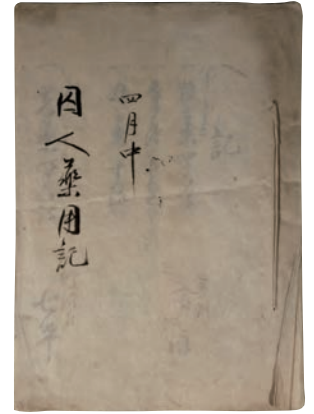 四月中
囚人薬用記